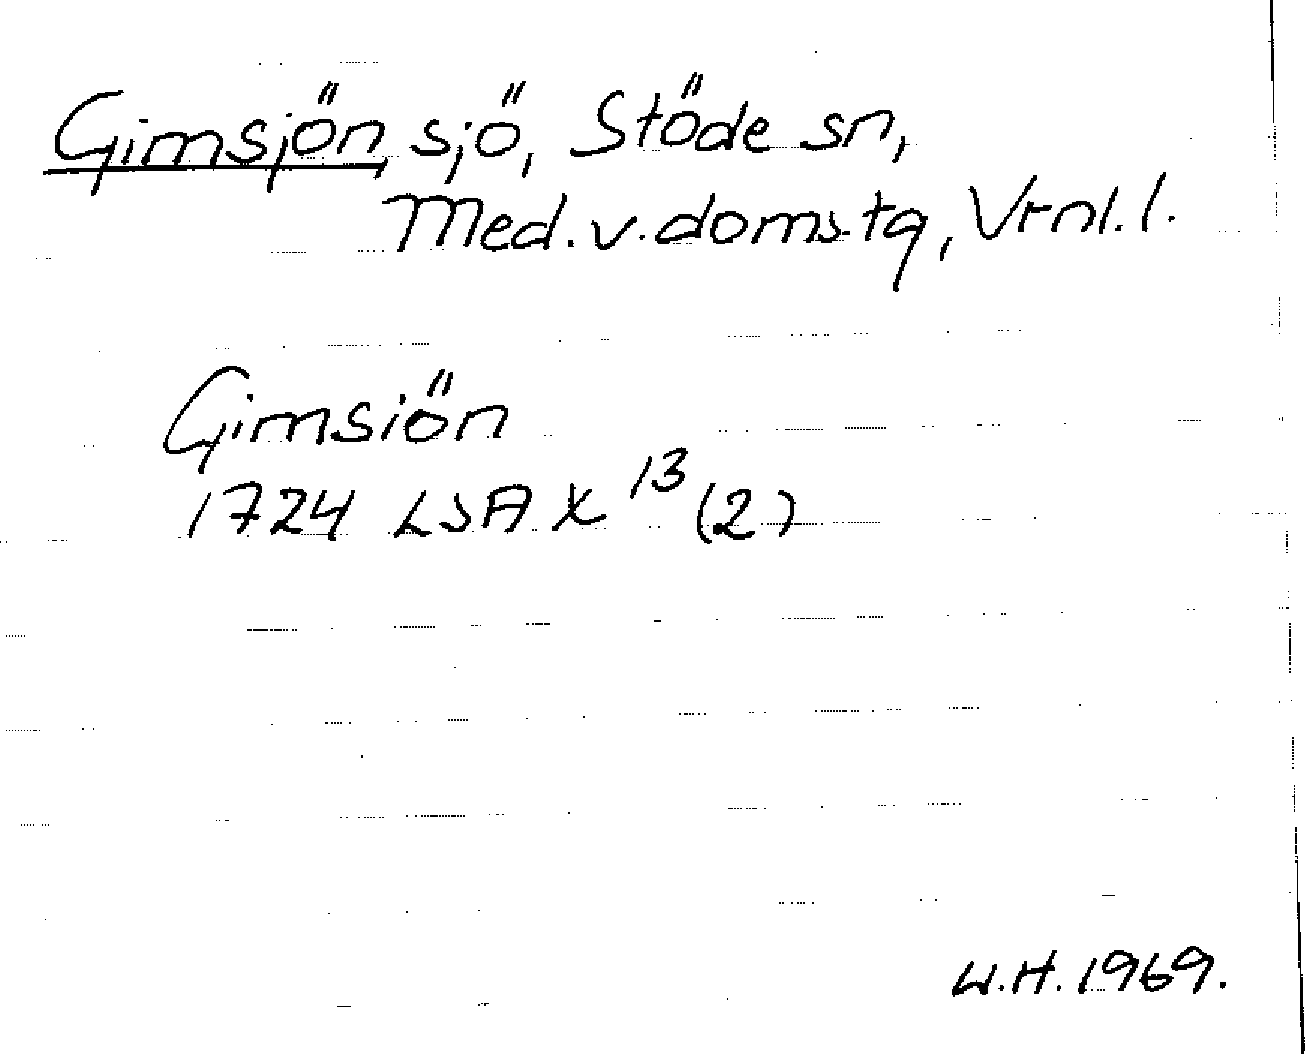 Gimsjön, sjö, Stöde sn,
Med. v. doms.tg, Vrnl. l.
Gimsiön
1724 LSA X 13 (2)
W.H. 1969.